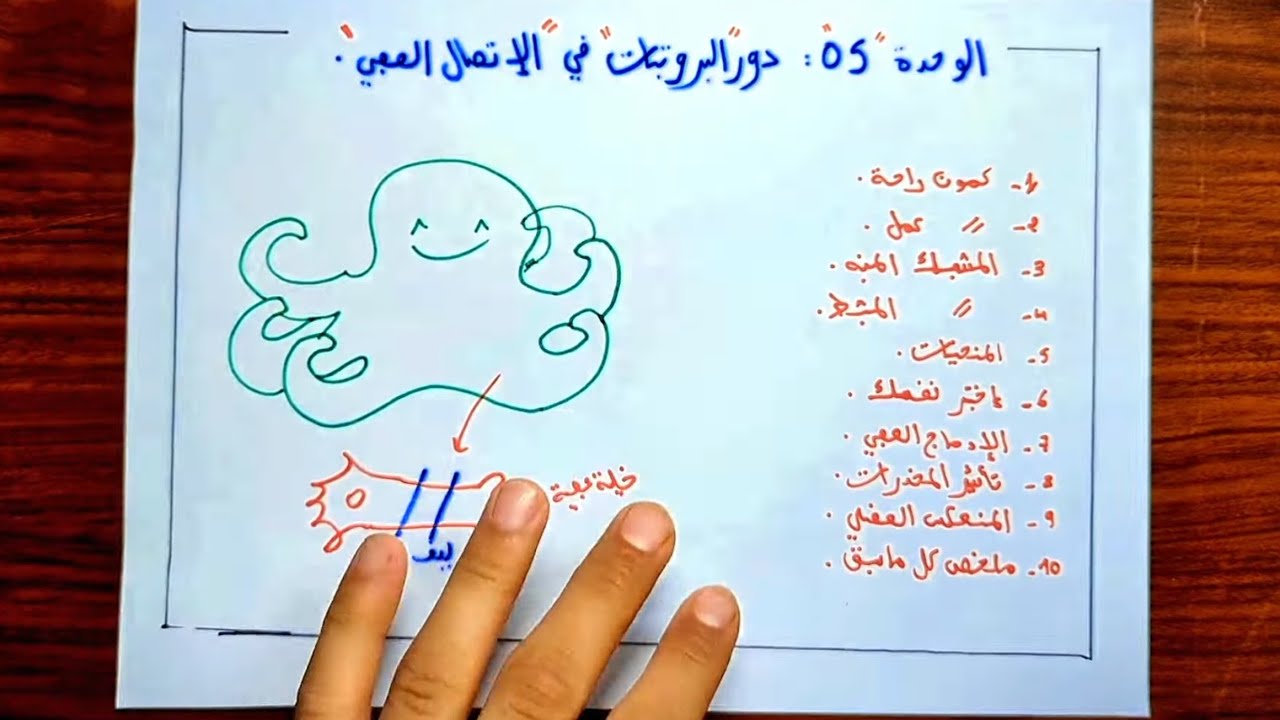 الوحدة "05": دور "البروتينات" في "الإتصال العصبي".
1- كمون راحة.
2- // عمل.
3- المشبك المنبه.
4- // المثبط.
5- المنحنيات.
6- إختبر نفسك.
7- الإدماج العصبي.
8- تأثير المخدرات.
9- المنعكس العضلي.
10- ملخص كل ما سبق.
خلية عصبية
ليف